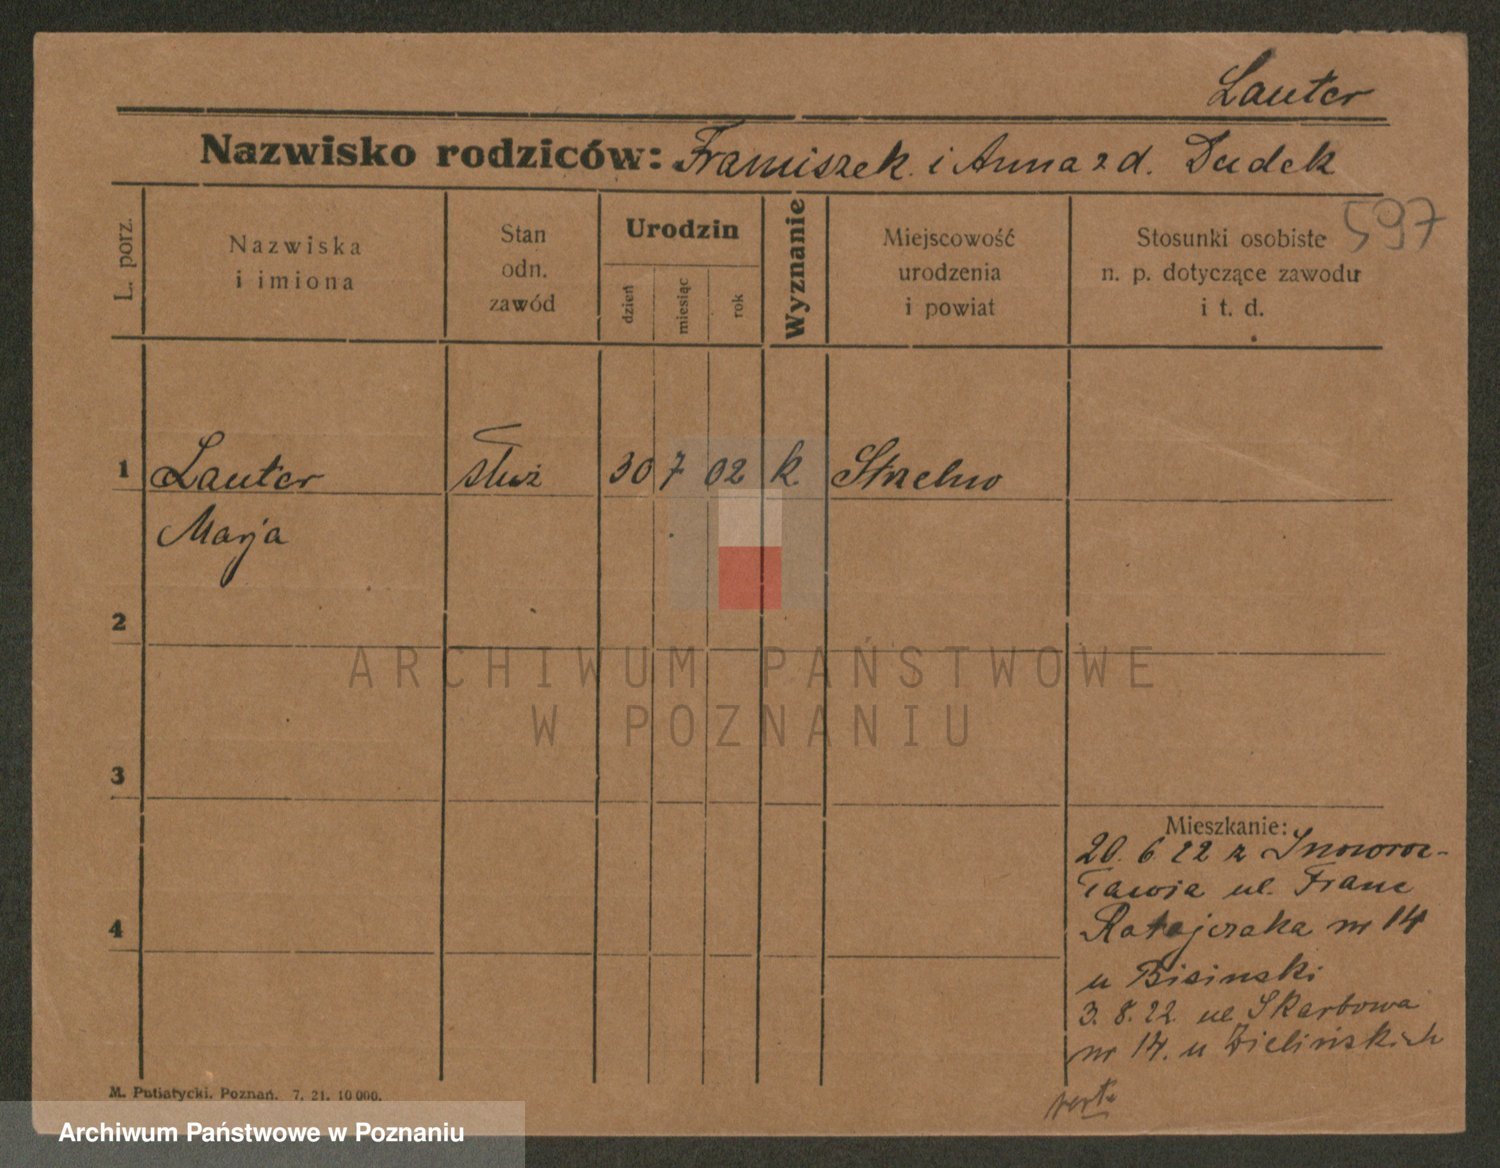 Lauter
Nazwisko rodziców: Franciszek i Anna z d. Dudek
597
L. porz.
Nazwiska
i imiona
Stan
odn.
zawód
Urodzin
dzień
miesiąc
rok
Wyznanie
Miejscowość
urodzenia
i powiat
Stosunki osobiste
n. p. dotyczące zawodu
i t. d.
1 Lauter służ 30 7 02 k. Strzelno
Marja
2
3
4
Mieszkanie:
20. 6 22 z Inowroc-
ławia ul. Franc
Ratajczaka nr 14
u Bisinski
3. 8. 22 ul Skarbowa
nr 14. u Zielińskich
verte
M. Putiatycki, Poznań. 7. 21. 10 000.
ARCHIWUM PAŃSTWOWE
W POZNANIU
Archiwum Państwowe w Poznaniu